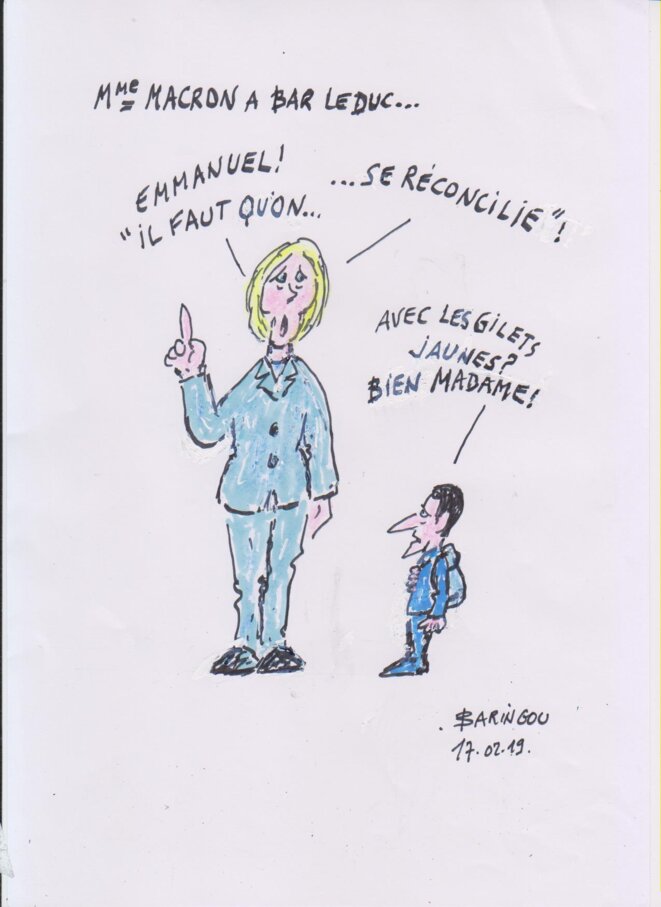 Mme MACRON A BAR LE DUC...
EMMANUEL!
"IL FAUT QU'ON...
...SE RÉCONCILIE"!
AVEC LES GILETS
JAUNES?
BIEN MADAME!
BARINGOU
17.02.19.